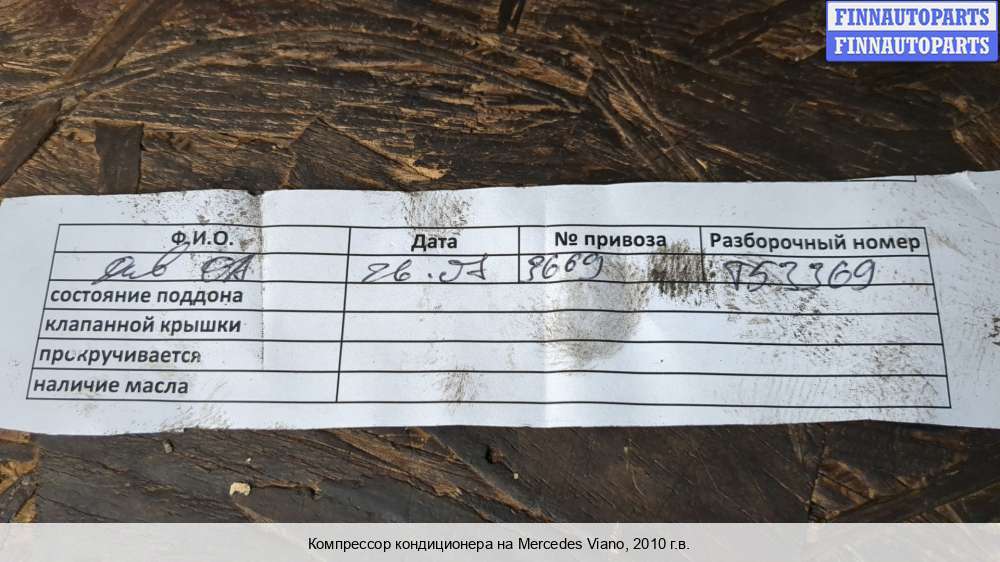 FINNAUTOPARTS
FINNAUTOPARTS
Ф.И.О. Дата № привоза Разборочный номер
26. 9669 T53369
состояние поддона
клапанной крышки
прокручивается
наличие масла
Компрессор кондиционера на Mercedes Viano, 2010 г.в.